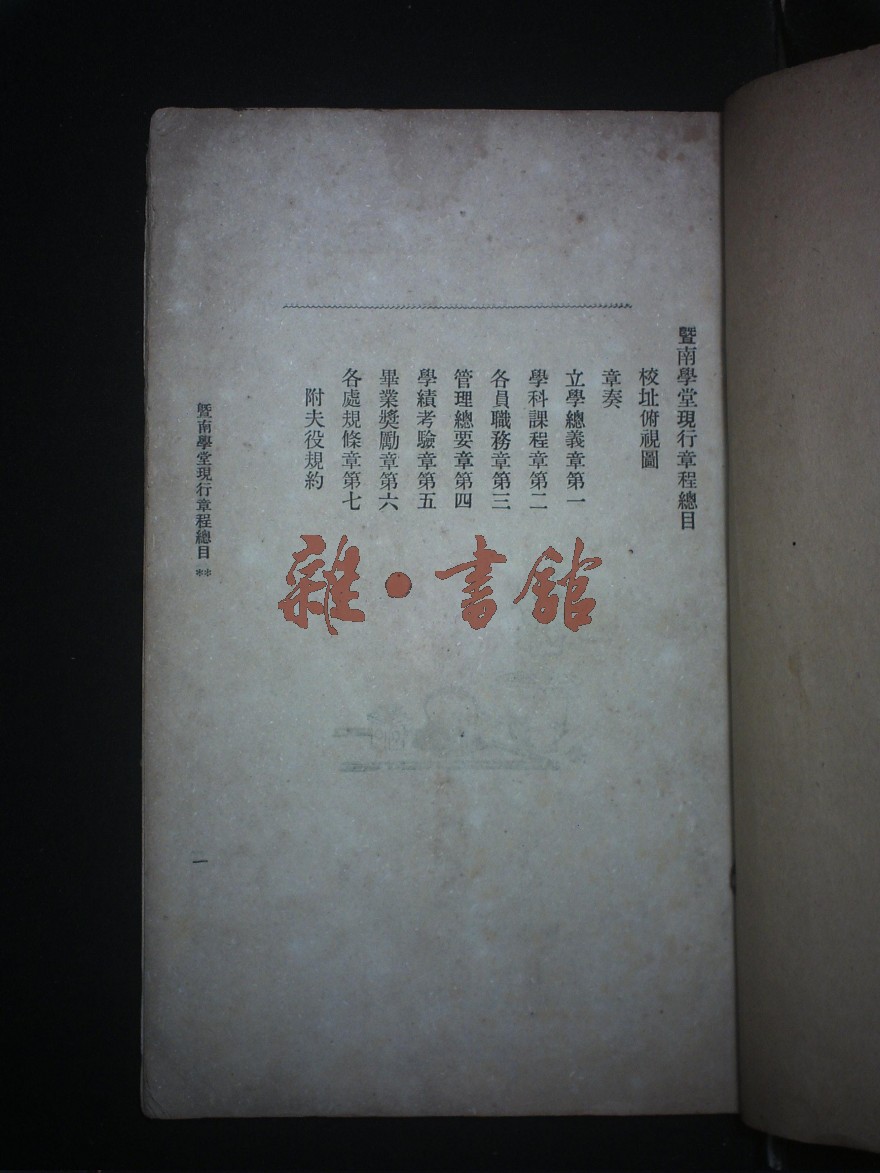 暨南學堂現行章程總目
校址俯視圖
章奏
立學總義章第一
學科課程章第二
各員職務章第三
管理總要章第四
學績考驗章第五
畢業獎勵章第六
各處規條章第七
附夫役規約
暨南學堂現行章程總目 **
一
雜•書館